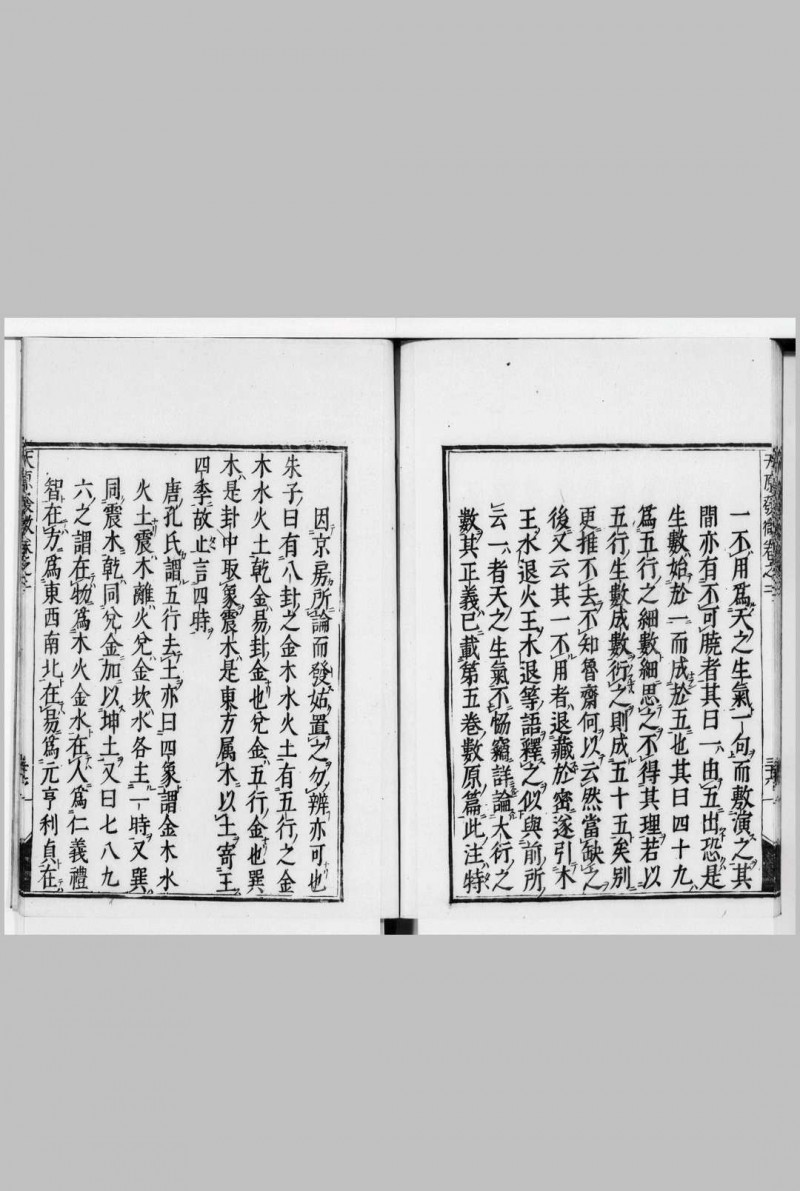 一不用爲天之生氣一句而敷演之其
間亦有不可曉者其曰一由五出恐是
生數始於一而成於五也其曰四十九
爲五行之細數細思之不得其理若以
五行生數成數衍之則成五十五矣別
更推不去不知魯齋何以云然當缺之
後又云其一不用者退藏於密遂引木
王水退火王木退等語釋之似與前所
云一者天之生氣不恊竊詳論大衍之
數其正義已載第五卷數原篇此注特
因京房所論而發姑置之勿辨亦可也
朱子曰有八卦之金木水火土有五行之金
木水火土乾金易卦金也兌金五行金也巽
木是卦中取象震木是東方属木以土寄王
四季故止言四時
唐孔氏謂五行去土亦曰四象謂金木水
火土震木離火兌金坎水各主一時又巽
同震木乾同兌金加以坤土又曰七八九
六之謂在物爲木火金水在人爲仁義禮
智在方爲東西南北在易爲元亨利貞在
天原發微卷之